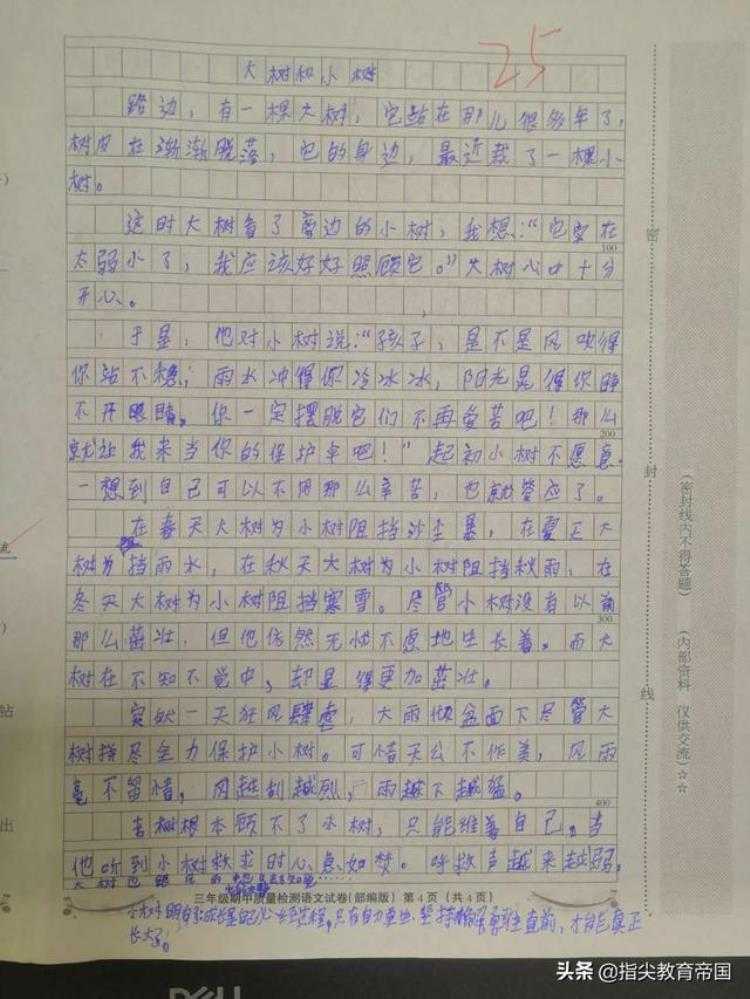 25
大树和小树
路边，有一棵大树，它站在那儿很多年了，
树皮在渐渐脱落，它的身边，最近栽了一棵小
树。
这时大树看了旁边的小树，我想：“它实在
100
太弱小了，我应该好好照顾它。”大树心中十分
开心。
于是，他对小树说：“孩子，是不是风吹得
你站不稳；雨水冲得你冷冰冰，阳光晃得你睁
不开眼睛。你一定摆脱它们不再受苦吧！那么
200
就让我来当你的保护伞吧！”起初小树不愿意，
一想到自己可以不用那么辛苦，也就答应了。
在春天大树为小树阻挡沙尘暴，在夏天大
树为挡雨水，在秋天大树为小树阻挡秋雨，在
冬天大树为小树阻挡寒雪。尽管小树没有以前
300
那么茁壮，但他仍然无忧不虑地生长着。而大
树在不知不觉中，却显得更加茁壮。
突然一天狂风肆虐，大雨倾盆而下尽管大
树拼尽全力保护小树。可惜天公不作美，风雨
毫不留情，风越刮越烈，雨越下越猛。
400
老树根本顾不了小树，只能维着自己。当
他听到小树救求时心急如焚。呼救声越来越弱，
三年级期中质量检测语文试卷（部编版） 第4页（共4页）
小树明白 只有自力更生 坚持 才能真正
长大了。
密
封
线
（密封线内不得答题） （内部资料 仅供交流）☆☆
钻
出
DELL
头条 @指尖教育帝国